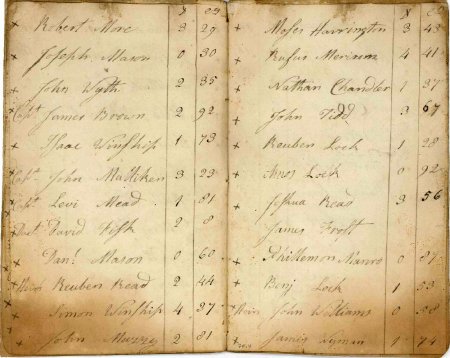 Robert More 3 29
Joseph Mason 0 30
John 2 35
Capt James Brown 2 92
Isaac Winship 1 73
Capt John Mulliken 3 23
Capt Levi Mead 1 81
David Fisk 2 8
Danl Mason 0 60
Heirs Reuben Read 2 44
Simon Winship 4 37
John 2 81
Moses Harrington 3 43
Rufus Merriam 4 41
Nathan Chandler 1 37
John Tidd 3 67
Reuben Lock 1 28
Amos Lock 0 92
Joshua Read 3 56
James Frost
Phillemon Munro 0 81
Benj Lock 1 53
Heirs John Williams 0 58
James Wyman 1 74